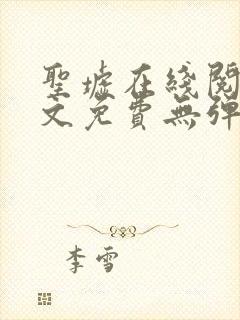 聖墟在綫閱
文免費無彈
李雪